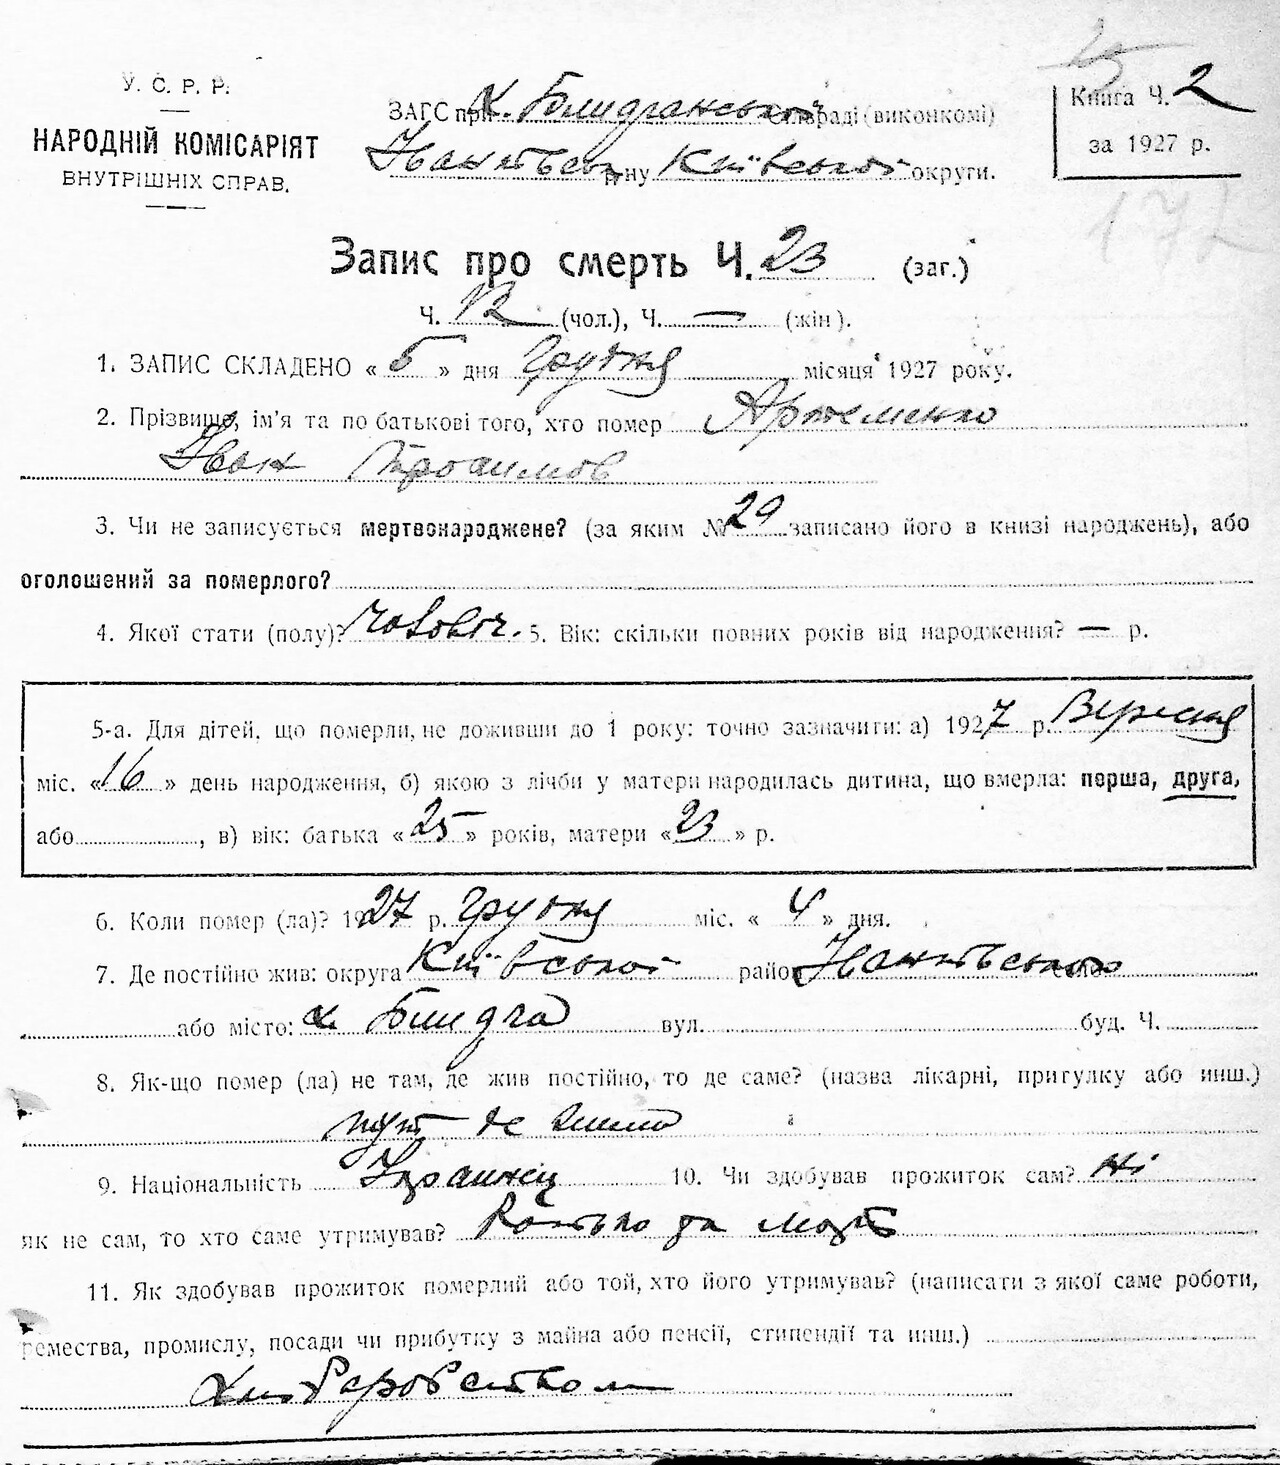 У. С. Р. Р.
НАРОДНІЙ КОМІСАРІЯТ
ВНУТРІШНІХ СПРАВ.
ЗАГС при х. сільраді (виконкомі)
р-ну Київської округи.
Книга Ч. 2
за 1927 р.
172
Запис про смерть Ч. 23 (заг.)
Ч. 12 (чол.), Ч. — (жін).
1. ЗАПИС СКЛАДЕНО « 5 » дня Грудня місяця 1927 року.
2. Прізвище, ім'я та по батькові того, хто помер Артеменко
Іван Трохимов
3. Чи не записується мертвонароджене? (за яким № 29 записано його в книзі народжень), або
оголошений за померлого?
4. Якої стати (полу)? чоловіч. 5. Вік: скільки повних років від народження? — р.
5-а. Для дітей, що померли, не доживши до 1 року: точно зазначити: а) 1927 р. Вересня
міс. « 16 » день народження, б) якою з лічби у матери народилась дитина, що вмерла: перша, друга,
або , в) вік: батька « 25 » років, матери « 23 » р.
6. Коли помер (ла)? 1927 р. Грудня міс. « 4 » дня.
7. Де постійно жив: округа Київської район
або місто: х. вул. буд. Ч.
8. Як-що помер (ла) не там, де жив постійно, то де саме? (назва лікарні, притулку або инш.)
тут де
9. Національність Українец 10. Чи здобував прожиток сам? Ні
як не сам, то хто саме утримував? Батько та мати
11. Як здобував прожиток померлий або той, хто його утримував? (написати з якої саме роботи,
ремества, промислу, посади чи прибутку з майна або пенсії, стипендії та инш.)
Хліборобством